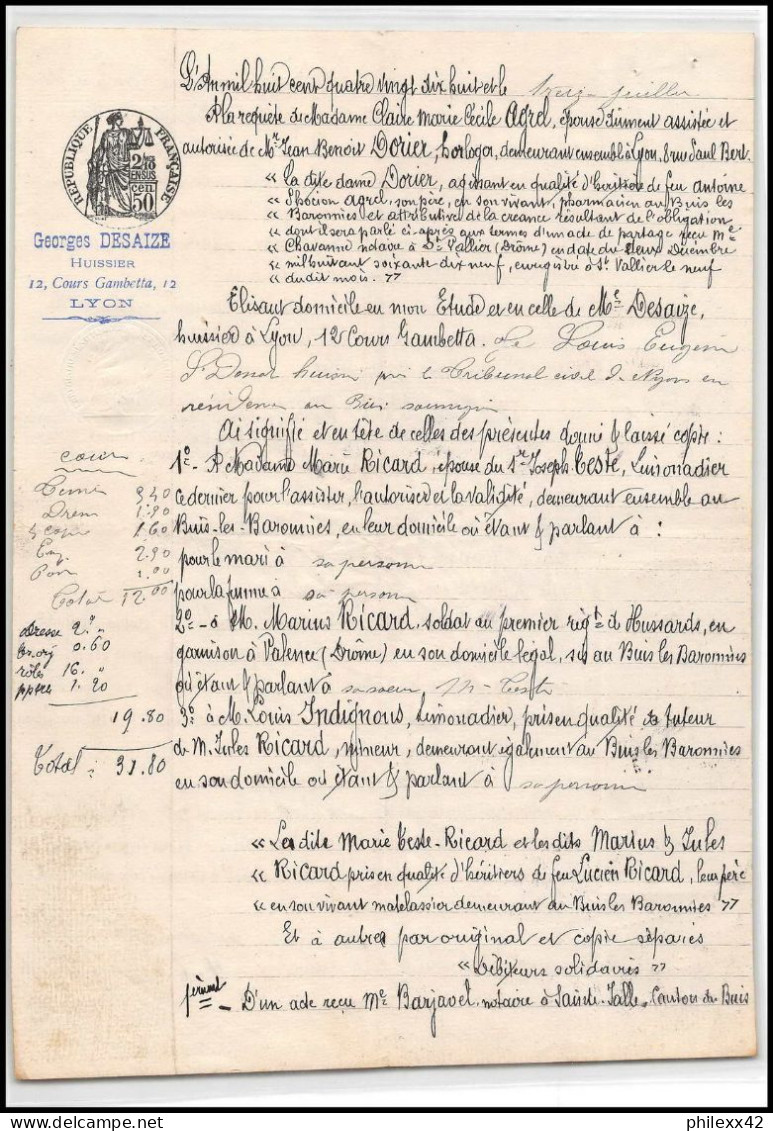 L'An mil huit cent quatre vingt dix huit et le treize juillet
A la requête de Madame Claire Marie Cécile Agrel, épouse dûment assistée et
autorisée de Mr Jean Benoit Dorier, horloger, demeurant ensemble à Lyon, 8 rue Paul Bert.
« La dite dame Dorier, agissant en qualité d'héritière de feu Antoine
« Phocion Agrel, son père, en son vivant, pharmacien au Buis les
« Baronnies et attributive de la créance résultant de l'obligation
« dont il sera parlé ci-après aux termes d'un acte de partage reçu Me
« Chavanne notaire à St Vallier (Drôme) en date du deux Décembre
« mil huit cent soixante dix neuf, enregistré à St Vallier le neuf
« du dit mois. »
REPUBLIQUE FRANÇAISE
2/10 EN SUS
50 cen
Georges DESAIZE
HUISSIER
12, Cours Gambetta, 12
LYON
Elisant domicile en mon Etude et en celle de Me Desaize,
huissier à Lyon, 12 Cours Gambetta. Je Louis Eugène
St Donat huissier près le Tribunal civil de Nyons en
résidence au Buis soussigné
Ai signifié et en tête de celles des présentes donné & laissé copie :
1º - A Madame Marie Ricard, épouse du Sr Joseph Teste, Limonadier
ce dernier pour l'assister, l'autoriser et la validité, demeurant ensemble au
Buis-les-Baronnies, en leur domicile où étant & parlant à :
pour le mari à sa personne
pour la femme à sa personne
2º - à M. Marius Ricard, soldat au premier régt de Hussards, en
garnison à Valence (Drôme) en son domicile légal, sis au Buis les Baronnies
où étant & parlant à sa soeur Me Teste
3º à M. Louis Indignous, Limonadier, pris en qualité de tuteur
de M. Jules Ricard, mineur, demeurant également au Buis les Baronnies
en son domicile où étant & parlant à sa personne
coût
3,40
1.80
copie 1.60
2.90
Total 12.00
adresse 2 " "
0.60
rôles 16. "
1.20
19.80
Total : 31.80
« Les dits Marie Teste-Ricard et les dits Marius & Jules
« Ricard pris en qualité d'héritiers de feu Lucien Ricard, leur père
« en son vivant matelassier demeurant au Buis les Baronnies »
Et à autres par original et copie séparés
« Débiteurs solidaires »
D'un acte reçu Me Barjavel, notaire à Sainte-Jalle, Canton du Buis
philexx42